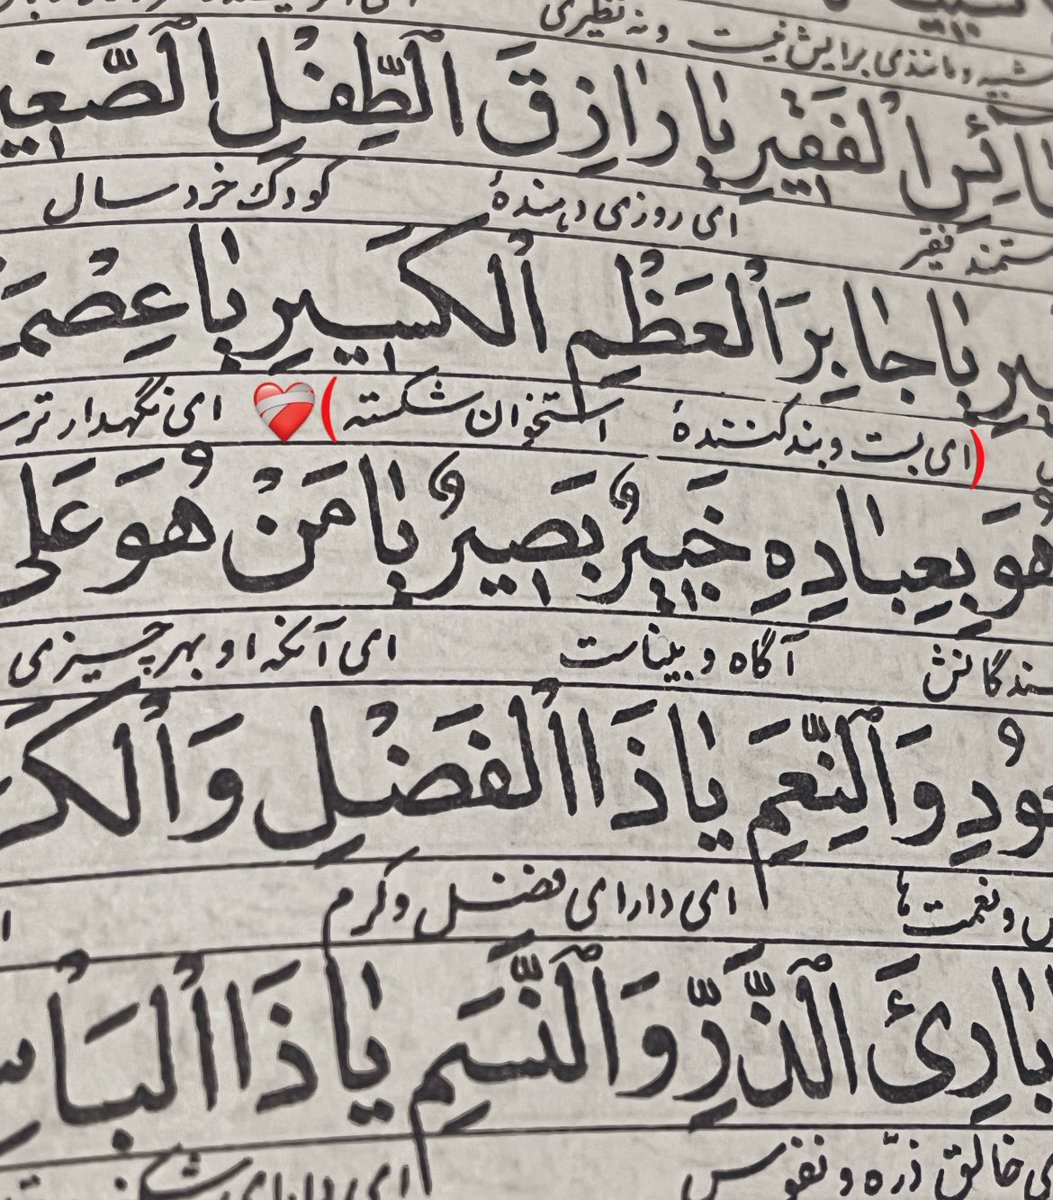 شبیه و مانندی برایش نیست و نه نظیری
الْفَقیرِ یا رازِقَ الطِّفْلِ الصَّغی
فقیر ای روزی دهندهٔ کودک خردسال
یرِ یا جابِرَ الْعَظْمِ الْکَسیرِ یا عِصْمَ
(ای بست و بند کنندهٔ استخوان شکسته) ای نگهدار
هُوَ بِعِبادِهِ خَبیرٌ بَصیرٌ یا مَنْ هُوَ عَلی
ندگانش آگاه و بیناست ای آنکه او بهر چیزی
ودِ وَالنِّعَمِ یا ذَا الْفَضْلِ وَالْکَرَ
و نعمت ها ای دارای فضل و کرم
بارِئَ الذَّرِّ وَالنَّسَمِ یا ذَا الْبَاْسِ
ی خالق ذرّه و نفوس ای دارای